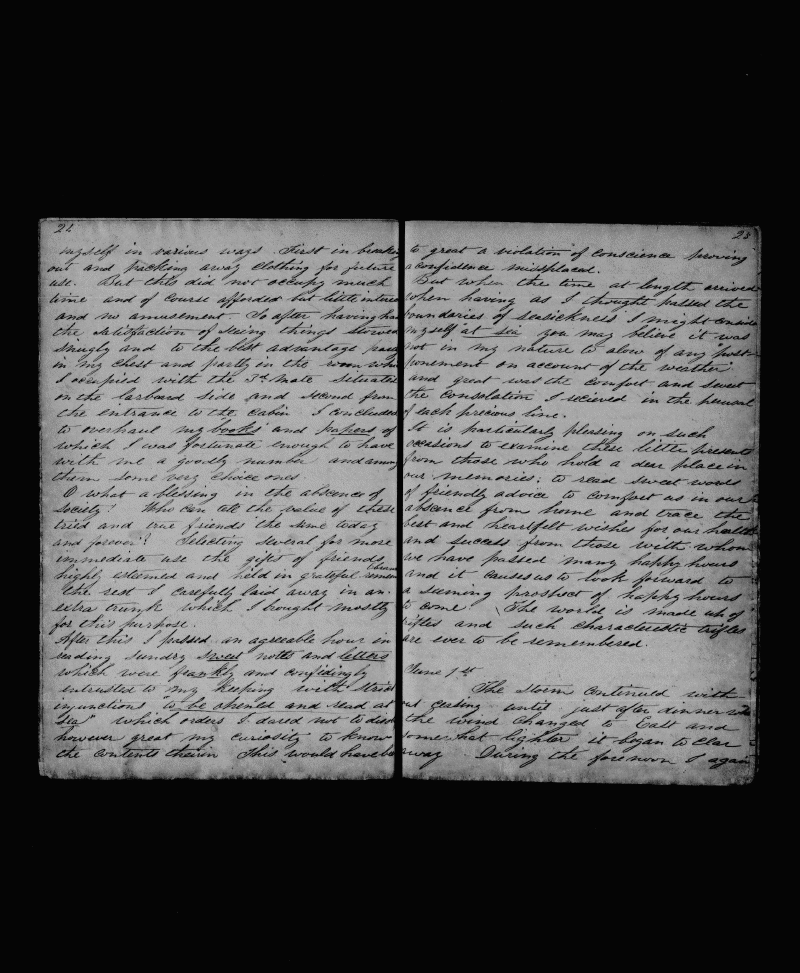 22
myself in various ways. First in breaking
out and packing away clothing for future
use. But this did not occupy much
time and of course afforded but little
and no amusement. So after having
the satisfaction of seeing things stowed
snugly and to the best advantage partly
in my chest and partly in the room
I occupied with the 3d Mate situated
on the larboard side and second from
the entrance to the Cabin I concluded
to overhaul my books and papers of
which I was fortunate enough to have
with me a goodly number and among
them some very choice ones.
O what a blessing in the abscence of
Society! Who can tell the value of these
tried and true friends the same today
and forever! Selecting several for more
immediate use the gifts of friends
highly esteemed and held in grateful remembrance
the rest I carefully laid away in an
extra trunk which I bought mostly
for this purpose.
After this I passed an agreeable hour in
reading sundry sweet notes and letters
which were frankly and confidingly
entrusted to my keeping with strict
injunctions "to be opened and read at
sea" which orders I dared not to
however great my curiosity to know
the contents therein This would have
23
to great a violation of conscience proving
a confidence missplaced.
But when the time at length arrived
when having as I thought passed the
boundaries of seasickness I might consider
myself at sea you may believe it was
not in my nature to alow of any "post-
ponement on account of the weather"
and great was the comfort and sweet
the consolation I recieved in the perusal
of each precious line.
It is particularly pleasing on such
occasions to examine these little presents
from those who hold a dear place in
our memories; to read sweet words
of friendly advice to comfort us in our
abscence from home and trace the
best and heartfelt wishes for our health
and success from those with whom
we have passed many happy hours
and it causes us to look forward to
a seeming prospect of happy hours
to come. The world is made up of
trifles and such characteristic trifles
are ever to be remembered.
June 1st
The storm continued with
out ceasing until just after dinner
the wind changed to East and
somewhat lighter it began to clear
away. During the forenoon I again